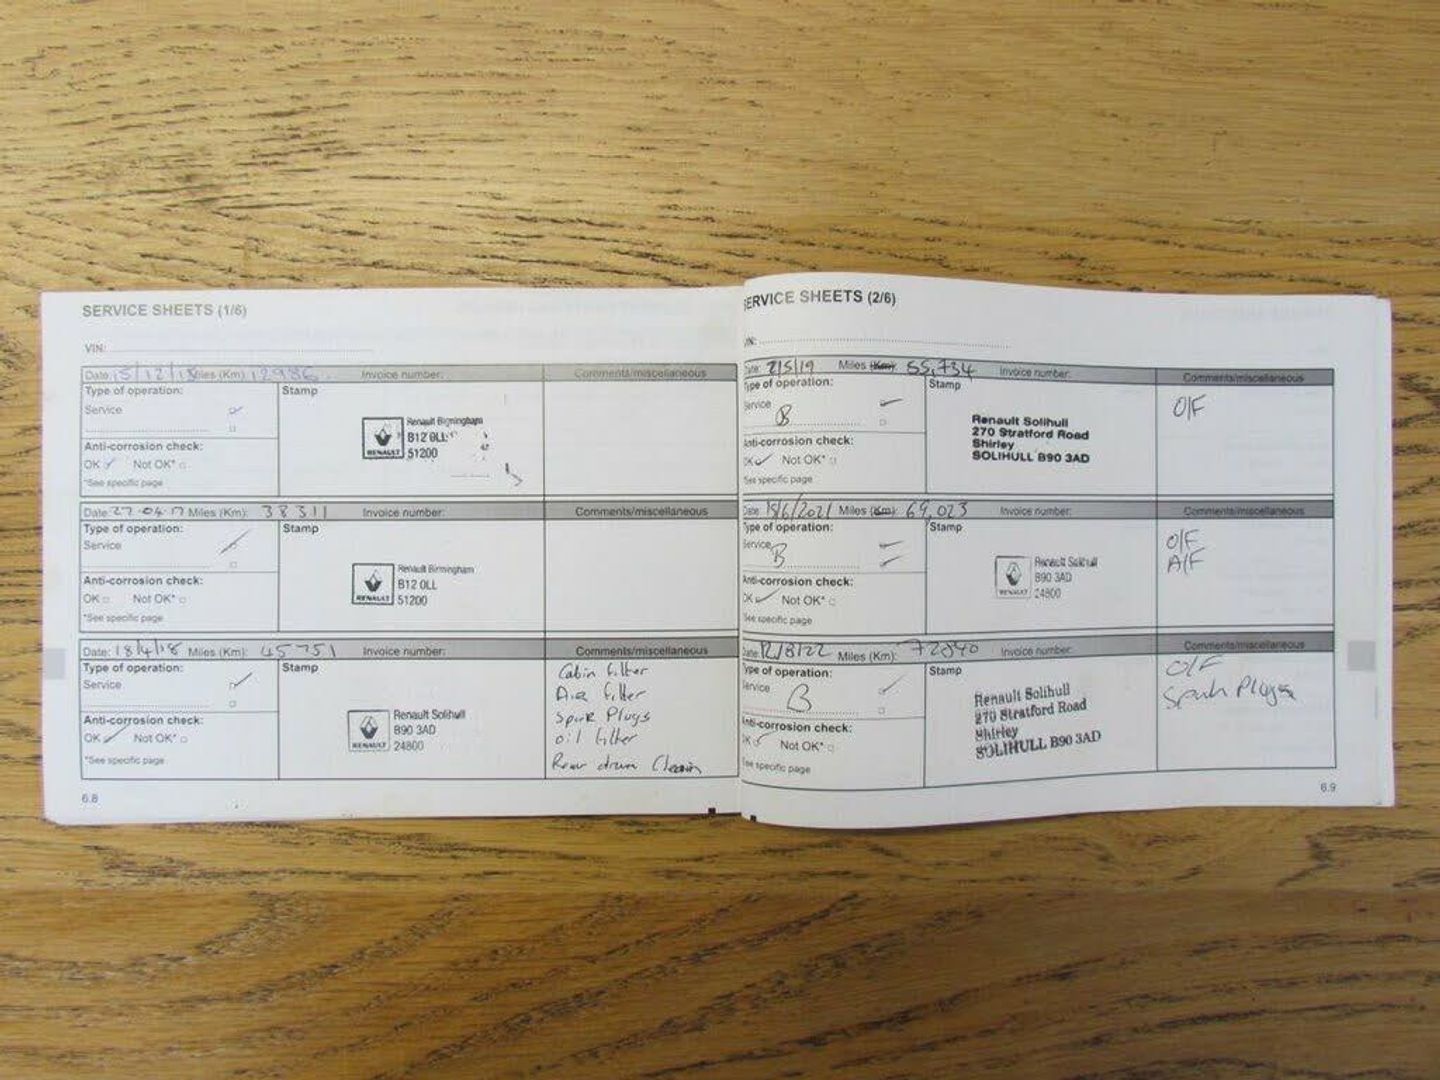 SERVICE SHEETS (1/6)
VIN:
Date: 15/12/15 Miles (Km): 12986 Invoice number: Comments/miscellaneous
Type of operation: Stamp
Service
Renault Birmingham
B12 0LL
RENAULT 51200
Anti-corrosion check:
OK Not OK*
*See specific page
Date: 27-04-17 Miles (Km): 38311 Invoice number: Comments/miscellaneous
Type of operation: Stamp
Service
Renault Birmingham
B12 0LL
RENAULT 51200
Anti-corrosion check:
OK Not OK*
*See specific page
Date: 18/4/18 Miles (Km): 45751 Invoice number: Comments/miscellaneous
Type of operation: Stamp
Service
Renault Solihull
B90 3AD
RENAULT 24800
Cabin filter
Air filter
Spark Plugs
oil filter
Rear drum Cleain
Anti-corrosion check:
OK Not OK*
*See specific page
6.8
SERVICE SHEETS (2/6)
VIN:
Date: 2/5/19 Miles (Km): 55,734 Invoice number: Comments/miscellaneous
Type of operation: Stamp
Service
B
Renault Solihull
270 Stratford Road
Shirley
SOLIHULL B90 3AD
O/F
Anti-corrosion check:
OK Not OK*
*See specific page
Date: 15/6/2021 Miles (Km): 69,023 Invoice number: Comments/miscellaneous
Type of operation: Stamp
Service
B
Renault Solihull
B90 3AD
RENAULT 24800
O/F
A/F
Anti-corrosion check:
OK Not OK*
*See specific page
Date: 12/8/22 Miles (Km): 72340 Invoice number: Comments/miscellaneous
Type of operation: Stamp
Service
B
Renault Solihull
270 Stratford Road
Shirley
SOLIHULL B90 3AD
O/F
Spark Plugs
Anti-corrosion check:
OK Not OK*
*See specific page
6.9